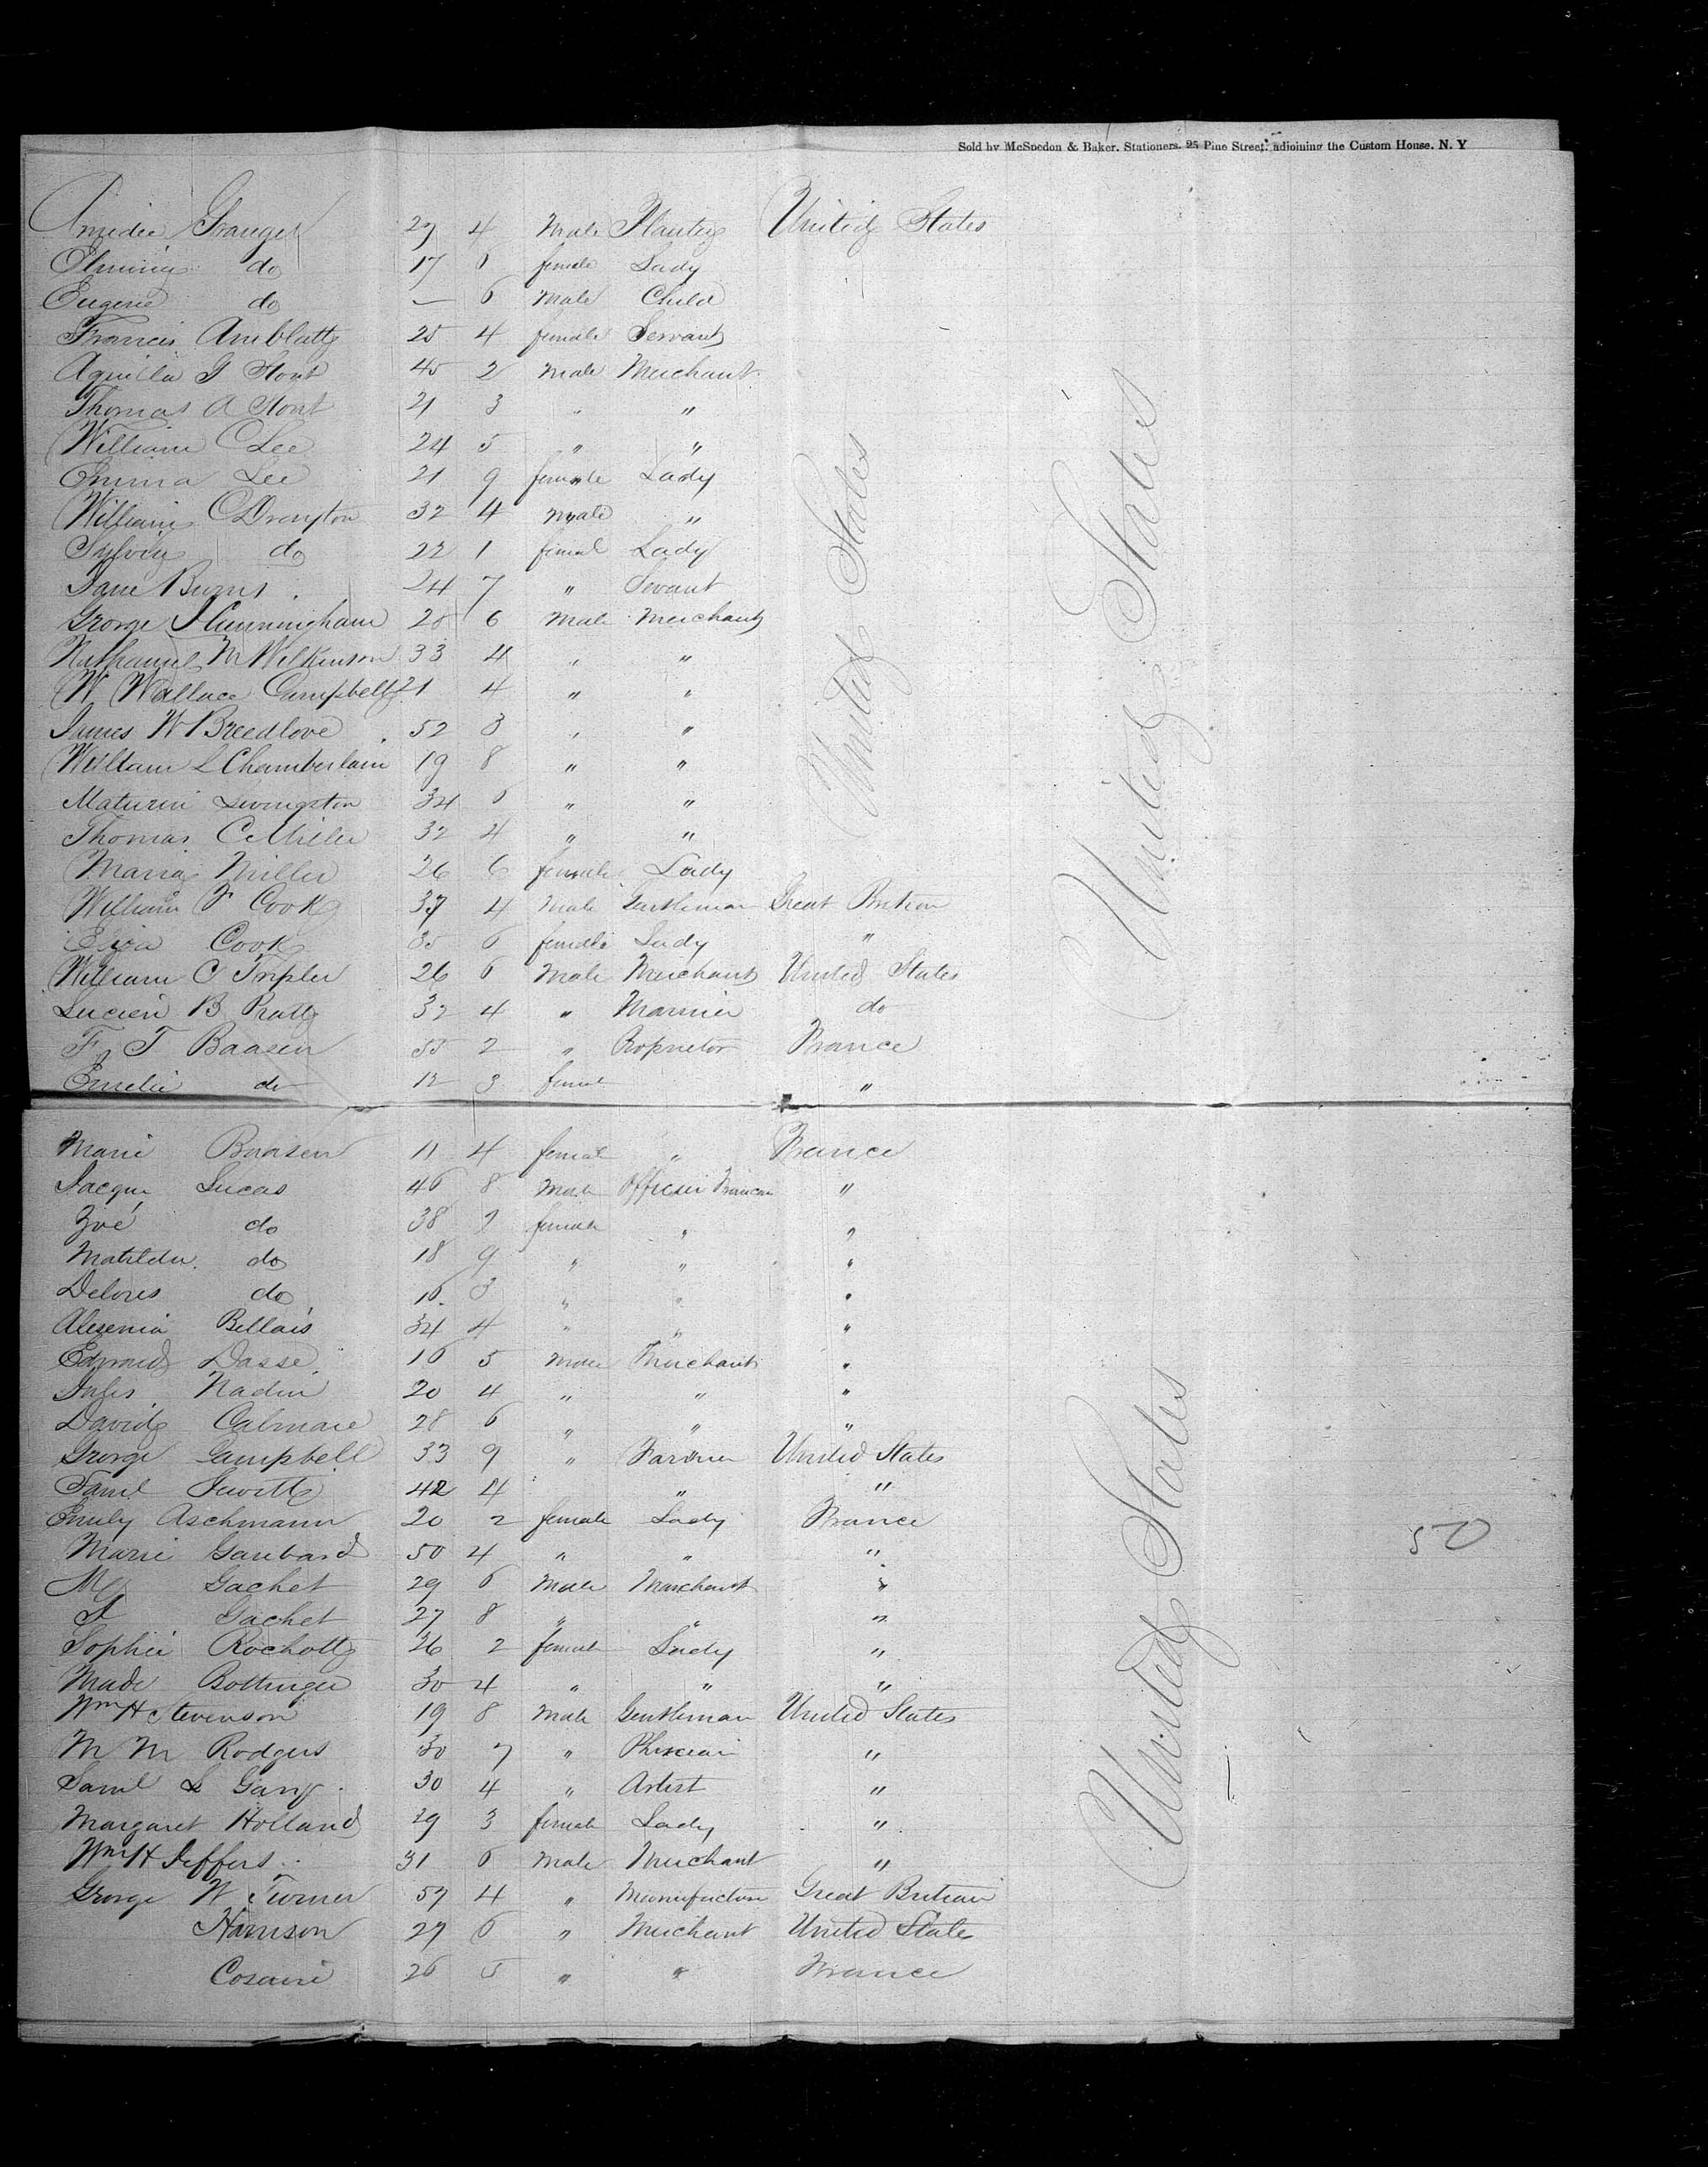 Sold by McSpedon & Baker, Stationers, 25 Pine Street, adjoining the Custom House, N. Y
Amedee Granger 27 4 Male Planter United States
do 17 female Lady
Eugene do — 6 Male Child
Francis 25 4 female Servant
Aquilla G Stout 45 2 Male Merchant
Thomas A Stout 21 3 " "
William C Lee 24 5 " "
Emma Lee 21 9 female Lady
William C Drayton 32 4 Male "
Sylvia do 22 1 female Lady
Jane Burns 24 7 " Servant
George J Cunningham 28 6 Male Merchant
Nathaniel M Wilkinson 33 4 " "
W Wallace Campbell 21 4 " "
James W Breedlove 52 3 " "
William L Chamberlain 19 8 " "
Maturin Livingston 34 6 " "
Thomas C Miller 32 4 " "
Maria Miller 26 6 female Lady
William F Cook 37 4 Male Gentleman Great Britian
Eliza Cook 35 6 female Lady "
William C Tripler 26 6 Male Merchant United States
Lucien B Pratt 32 4 " Marinier do
F T Baasen 55 2 " Proprietor France
Emelie do 12 3 femal "
United States
United States
Marie Baasen 11 4 femal " France
Jacque Lucas 46 8 Male Officier Francais "
Zoé do 38 2 female " "
Matilda do 18 9 " " "
Delores do 16 3 " " "
Alexenia Bellais 34 4 " " "
Edward Dasse 16 5 Male Merchant "
Jules Nadin 20 4 " " "
David Calmare 28 6 " " "
George Campbell 33 9 " Farmer United States
Saml Jewitt 42 4 " "
Emily Aschmann 20 2 female Lady France
Marie Gaubard 50 4 " " "
M Gachet 29 6 Male Marchant "
Gachet 27 8 " " "
Sophie Rochott 26 2 female Lady "
Made Bottinger 30 4 " " "
Wm H Stevenson 19 8 Male Gentleman United States
M M Rodgers 30 7 " "
Saml L 30 4 " Artist "
Margaret Holland 29 3 female Lady "
Wm H Jeffers 31 6 Male Merchant "
George W Turner 57 4 " Great Britian
Harrison 27 6 " Merchant United State
26 5 " " France
United States
50